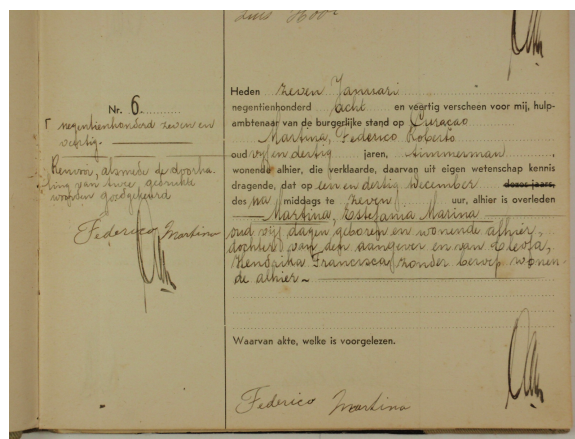 Luis Hooi
Nr. 6.
Γ negentienhonderd zeven en
veertig.
Renvooi, alsmede de doorha-
ling van twee gedrukte
woorden goedgekeurd
Federico Martina
Heden zeven Januari
negentienhonderd acht en veertig verscheen voor mij, hulp-
ambtenaar van de burgerlijke stand op Curaçao
Martina, Federico Roberto
oud vijf en dertig jaren, timmerman,
wonende alhier, die verklaarde, daarvan uit eigen wetenschap kennis
dragende, dat op een en dertig December dezes jaars, Γ
des na middags te zeven uur, alhier is overleden
Martina, Estefania Marina
oud vijf dagen geboren en wonende alhier,
dochter van den aangever en van Cleofa,
Hendrika Francisca, zonder beroep wonen-
de alhier
Waarvan akte, welke is voorgelezen.
Federico Martina